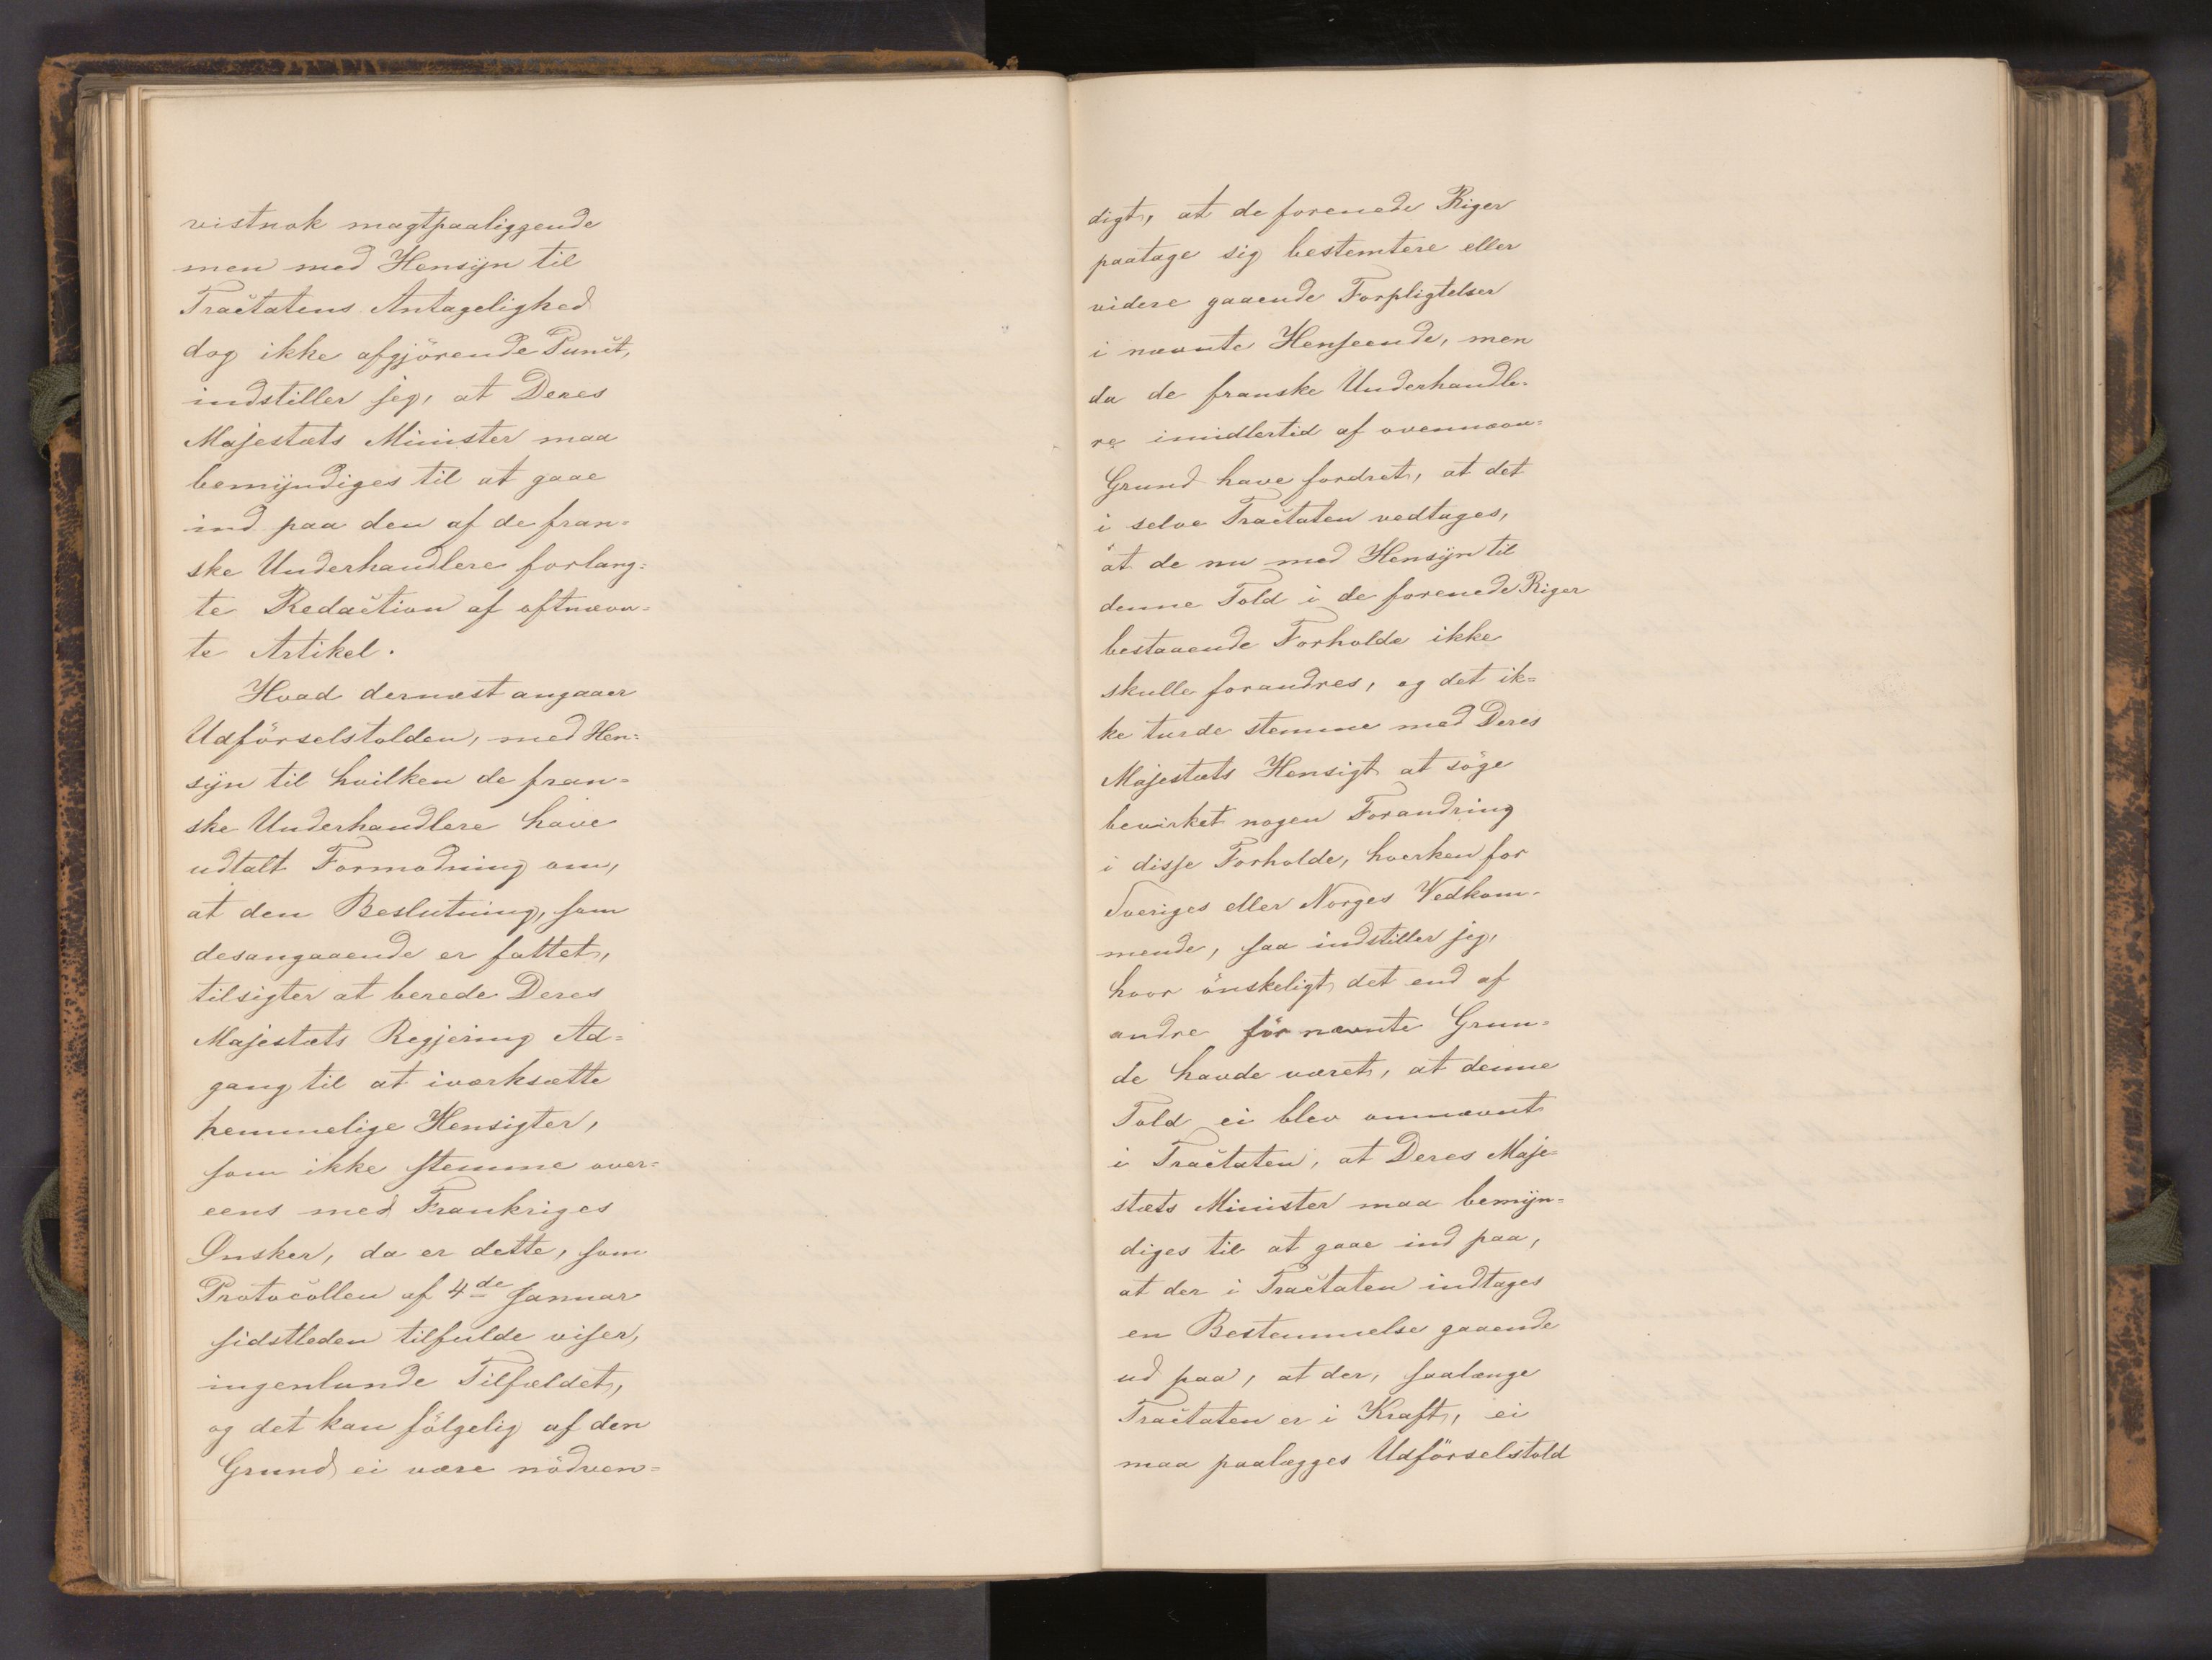 vistnok magtpaaliggende
men med Hensÿn til
Tractatens Antagelighed
dog ikke afgjörende Punct,
indstiller jeg, at Deres
Majestæts Minister maa
bemÿndiges til at gaae
ind paa den af de fran=
ske Underhandlere forlang=
te Redaction af oftnævn=
te Artikel.
Hvad dernæst angaaer
Udförselstolden, med Hen=
sÿn til hvilken de fran=
ske Underhandlere have
udtalt Formodning om,
at den Beslutning, som
desangaaende er fattet,
tilsigter at berede Deres
Majestæts Regjering Ad=
gang til at iværksætte
hemmelige Hensigter,
som ikke stemme over=
eens med Frankriges
Ønsker, da er dette, som
Protocollen af 4de Januar
sidstleden tilfulde viser,
ingenlunde Tilfældet,
og det kan fölgelig af den
Grund ei være nödven=
digt, at de forenede Riger
paatage sig bestemtere eller
videre gaaende Forpligtelser
i nævnte Henseende, men
da de franske Underhandle=
re imidlertid af ovennævn=
Grund have fordret, at det
i selve Tractaten vedtages,
at de nu med Hensÿn til
denne Told i de forenede Riger
bestaaende Forholde ikke
skulle forandres, og det ik=
ke turde stemme med Deres
Majestæts Hensigt at söge
bevirket nogen Forandring
i disse Forholde, hverken for
Sveriges eller Norges Vedkom=
mende, saa indstiller jeg,
hvor önskeligt det end af
andre för nævnte Grun=
de havde været, at denne
Told ei blev omnævnt
i Tractaten, at Deres Maje=
stæts Minister maa bemÿn=
diges til at gaae ind paa,
at der i Tractaten indtages
en Bestemmelse gaaende
ud paa, at der, saalænge
Tractaten er i Kraft, ei
maa paalægges Udförselstold